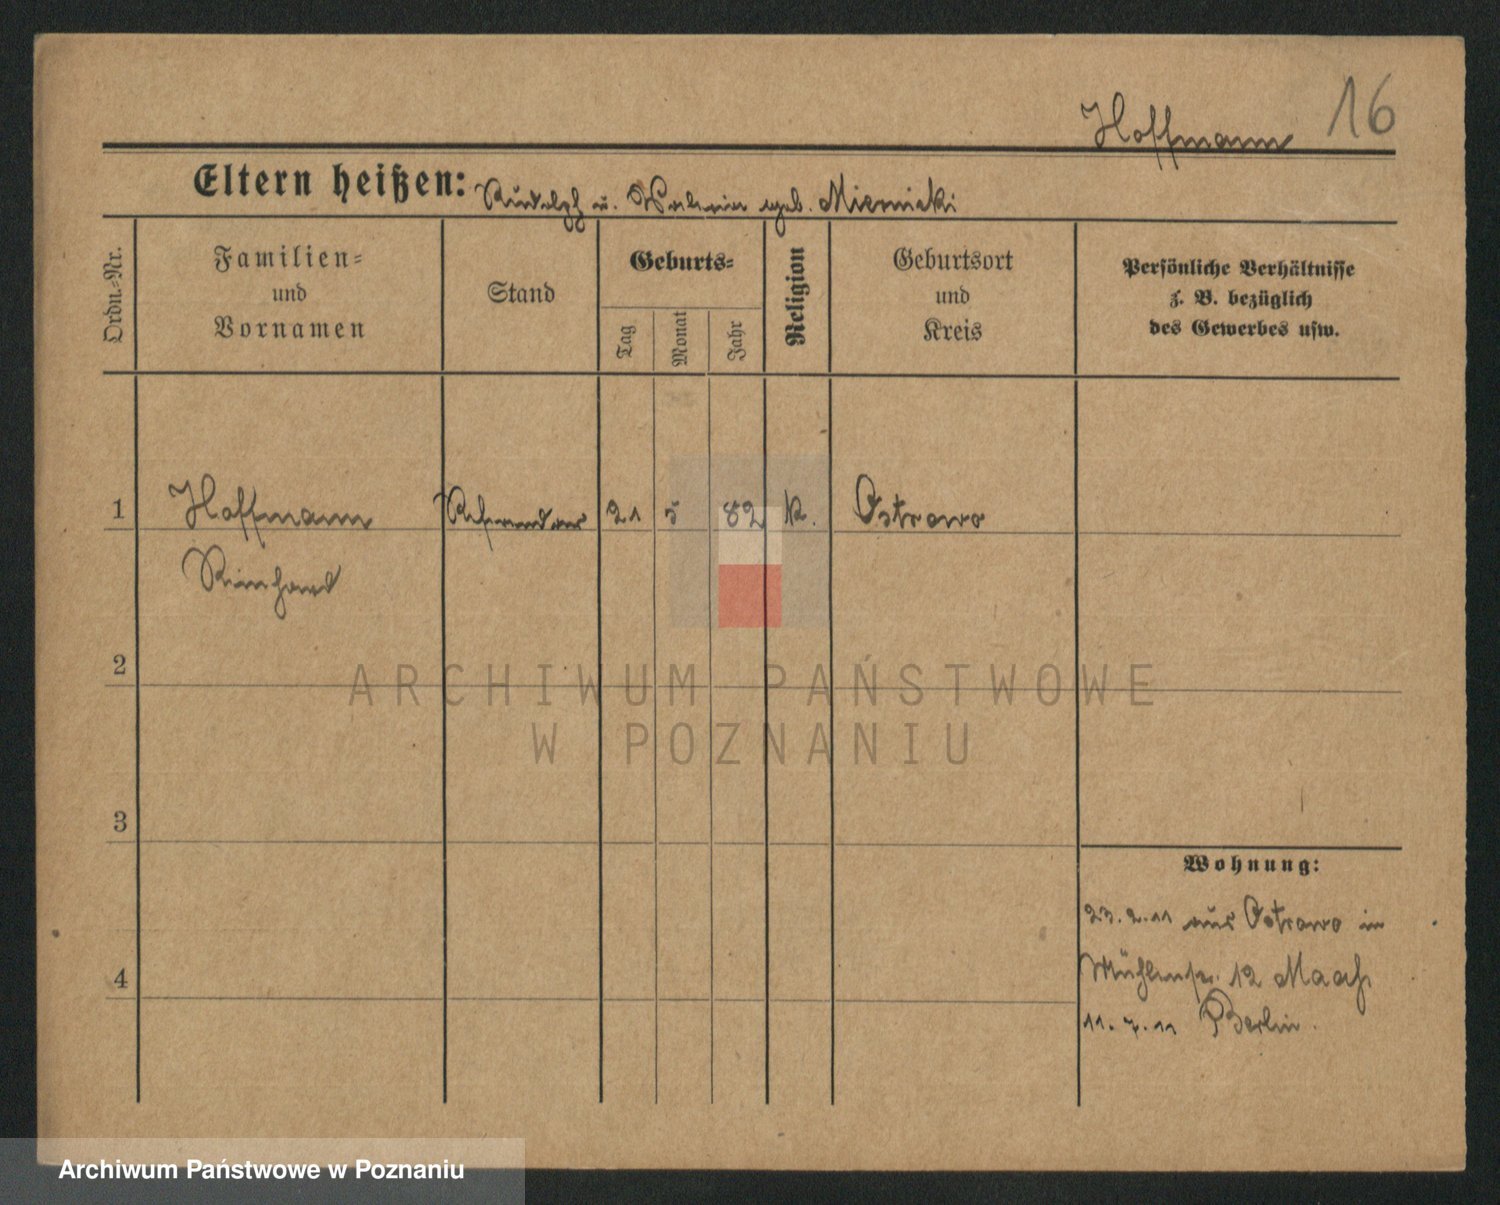 Hoffmann 16
Eltern heißen: Rudolph u. Valerie geb. Miernicki
Ordn.-Nr.
Familien-
und
Vornamen
Stand
Geburts-
Tag
Monat
Jahr
Religion
Geburtsort
und
Kreis
Persönliche Verhältnisse
z. B. bezüglich
des Gewerbes usw.
1 Hoffmann Referendar 21 5 82 k. Ostrowo
Reinhard
2
3
4
Wohnung:
23.2.11 aus Ostrowo in
Mühlenstr. 12
11.7.11 Berlin.
ARCHIWUM PAŃSTWOWE
W POZNANIU
Archiwum Państwowe w Poznaniu